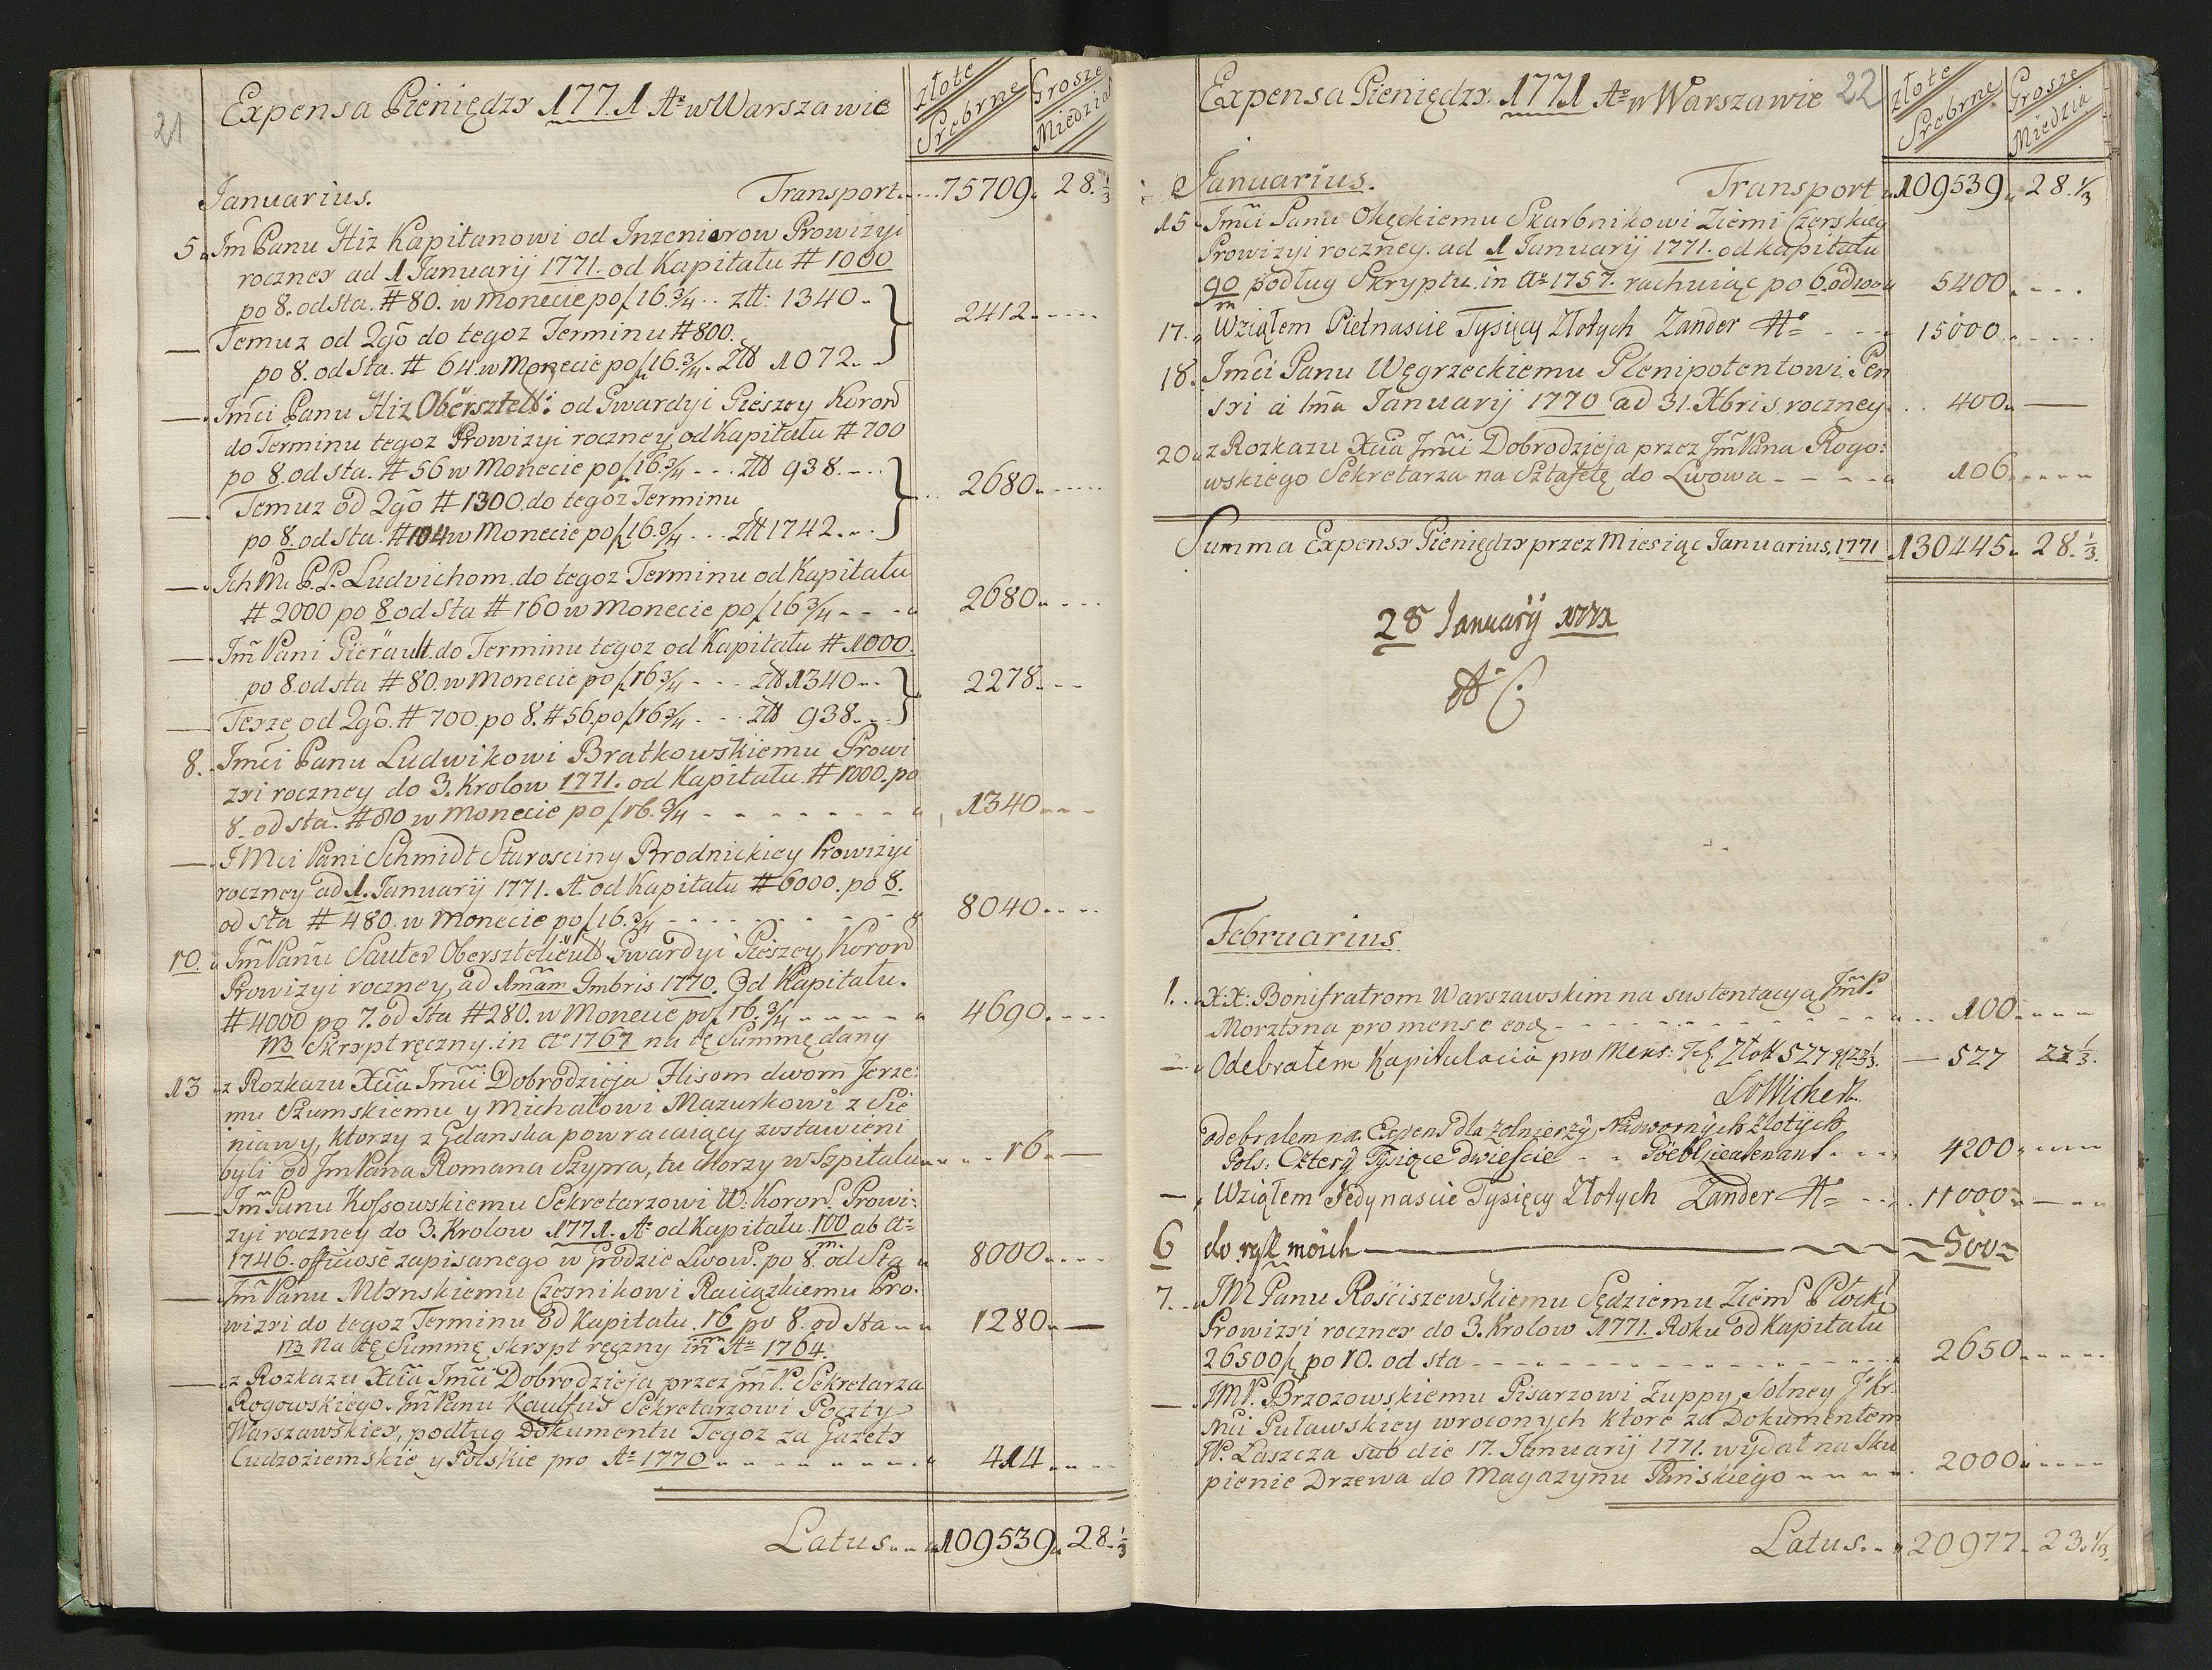 21
Expensa Pieniędzy 1771 Aº w Warszawie
Złote Srebrne
Grosze Miedzia
Januarius.
Transport 75709 28 1/3
5 Jm Panu Hiz Kapitanowi od Inzenierow Prowizyi
roczney ad 1 Januarij 1771. od Kapitału # 1000
po 8. od sta. # 80. w Monecie po f 16 3/4 .. złt: 1340
Temuz od 2gô do tegoz Terminu # 800.
po 8. od sta. # 64 w Monecie po f 16. 3/4 . Złt 1072
2412
Jmci Panu Hiz Obersztelt: od Gwardyi Pieszey Koron
do Terminu tegoz Prowizyi roczney od Kapitału # 700
po 8. od sta. # 56 w Monecie po f 16. 3/4 - - . złt 938.
Temuz od 2gô # 1300. do tegoz Terminu
po 8. od sta. # 104 w Monecie po f 16. 3/4 . . . Złt 1742.
2680
Ich Mc P.P. Ludvichom. do tegoz Terminu od Kapitału
# 2000 po 8 od Sta # 160 w Monecie po f 16 3/4 - - - 2680
Jm̃ Pani Pierault. do Terminu tegoz od Kapitału # 1000.
po 8. od sta # 80. w Monecie po f 16 3/4 - - - Złt 1340
Terze od 2gô. # 700. po 8. # 56. po f 16 3/4 . - . Złt 938.
2278
8. Jmci Panu Ludwikowi Bratkowskiemu Prowi
zyi roczney do 3. Krolow 1771. od Kapitału # 1000. po
8. od sta. # 80 w Monecie po f 16. 3/4 - - - - - - - 1340
JMci Pani Schmidt Starosciny Brodnickiey Prowizyi
roczney ad 1. Januarij 1771. A. od Kapitału # 6000. po 8.
od sta # 480. w Monecie po f 16. 3/4 - - - - - - - - 8040
10. Jm̃ Panu Sauter Obersztelieut Gwardyi Pieszey Koron
Prowizyi roczney, ad 1mam 9mbris 1770. Od Kapitału.
# 4000 po 7. od sta # 280. w Monecie po f 16. 3/4 - - - - - 4690
NB Skrypt ręczny. in Aº 1767 na tę Summę dany
13 z Rozkazu Xcia Jmci Dobrodzieja Flisom dwom Jerze:
mu Szumskiemu y Michałowi Mazurkowi z Sie
niawy, ktorzy z Gdanska powracaiący zostawieni
byli od Jm Pana Romana Szypra, tu chorzy w Szpitalu 16
Jm̃ Panu Kossowskiemu Sekretarzowi W: Koron. Prowi:
zyi roczney do 3. Krolow 1771. Aº od Kapitału 100 m. ab Aº
1746. officiose zapisanego w Grodzie Lwow. po 8. od Sta 8000
Jm̃ Panu Młynskiemu Czesnikowi Raciązkiemu Pro.
wizyi do tegoz Terminu od Kapitału 16 m po 8. od sta 1280
NB Na tę Summę skrypt ręczny in Aº 1764.
z Rozkazu Xcia Jmci Dobrodzieja przez Jm P. Sekretarza
Rogowskiego. Jm Panu Kaulfus Sekretarzowi Poczty
Warszawskiey, podług Dokumentu Tegoz za Gazety
Cudzoziemskie y Polskie pro Aº 1770 414
Latus 109539 28 1/3
Expensa Pieniędzy. 1771 Aº w Warszawie 22
Złote Srebrne
Grosze Miedzia
Januarius.
Transport 109539 28. 1/3
15 Jmci Panu Okęckiemu Skarbnikowi Ziemi Czerskiey
Prowizyi roczney. ad 1 Januarij 1771. od Kapitału
90 m podług Skryptu. in Aº 1757. rachuiąc po 6. od 100 5400
17. Wziąłem Pietnascie Tysięcy Złotych Zander 15000
18. Jmci Panu Węgrzeckiemu Plenipotentowi Pen
syi à 1ma Januarij 1770 ad 31. Xbris, roczney 400
20 z Rozkazu Xcia Jmci Dobrodzieja przez Jm Pana Rogo:
wskiego Sekretarza na Sztafetę do Lwowa - - - - 106
Summa Expensy Pieniędzy przez Miesiąc Januarius, 1771 130445 28. 1/3.
28 January 1771
Februarius.
1. X:X: Bonifratrom Warszawskim na sustentacyą Jm P.
Morztyna pro mense eodę 100
Odebrałem Kapitulacia pro Mens: Feb Złott 527 g 22 1/3. 527 22 1/3.
odebrałem na Expens dla zołnierzy Nadwornych złotych
Pols: Cztery Tysiące dwiescie 4200
Wziąłem Jedynascie Tysięcy Złotych Zander 11000
6 do rąk moich 500
7. JM Panu Rosciszewskiemu Sędziemu Ziem Płock
Prowizyi roczney do 3. Krolow 1771. Roku od Kapitału
26500 f po 10. od sta 2650
JM P. Brzozowskiemu Pisarzowi Zuppy Solney
Puławskiey wroconych ktore za Dokumentem
W. Laszcza sub die 17. Januarij 1771. wydał na sku
pienie Drzewa do Magazynu Pańskiego 2000
Latus. 20977 23. 1/3.